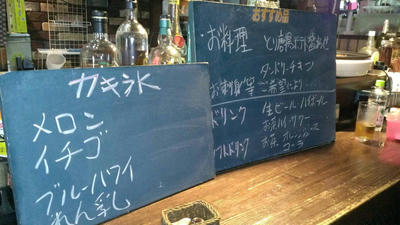 カキ氷
メロン
イチゴ
ブルーハワイ
れん乳
おすすめ品
お料理
タンドリーチキン
ご希望により
ドリンク 生ビール ハイボール
お茶ハイ サワー
ソフトドリンク お茶 オレンジジュース
コーラ